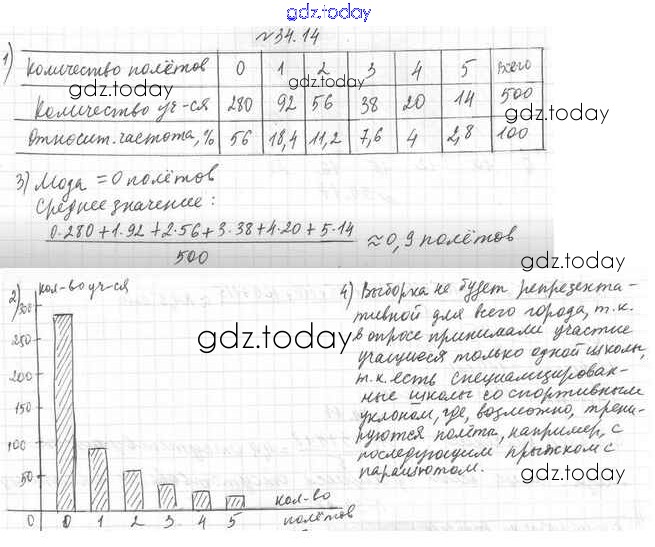 gdz.today
№34.14
1) Количество полётов 0 1 2 3 4 5 Всего
gdz.today gdz.today
Количество уч-ся 280 92 56 38 20 14 500
gdz.today
Относит. частота, % 56 18,4 11,2 7,6 4 2,8 100
3) Мода = 0 полётов
Среднее значение:
0·280+1·92+2·56+3·38+4·20+5·14
500
≈0,9 полётов
gdz.today
2) кол-во уч-ся
300
250
200
150
100
50
0
0 1 2 3 4 5
кол-во
полётов
gdz.today
4) Выборка не будет репрезента-
тивной для всего города, т.к.
в опросе принимали участие
учащиеся только одной школы,
т.к. есть специализирован-
ные школы со спортивным
уклоном, где, возможно, трени-
руются полёта, например, с
последующим прыжком с
парашютом.
gdz.today
gdz.today